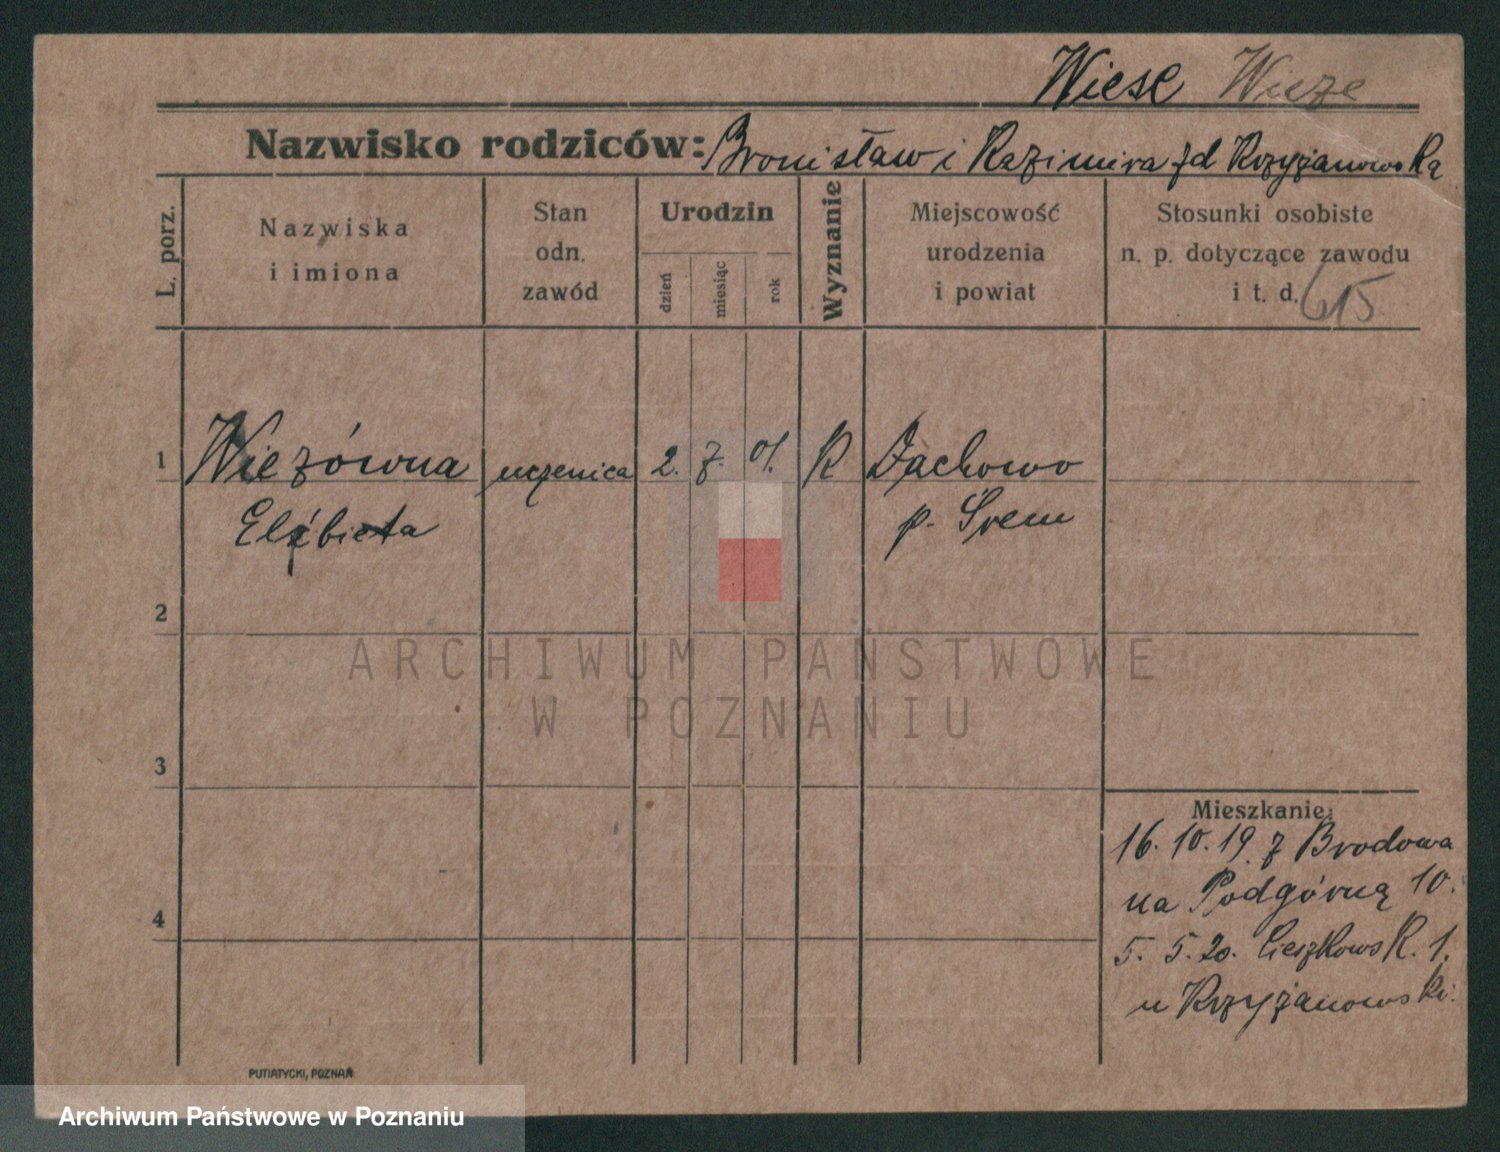 Wiese Wieze
Nazwisko rodziców: Bronisław i Kazimira zd Krzyżanowską
L. porz.
Nazwiska
i imiona
Stan
odn.
zawód
Urodzin
dzień
miesiąc
rok
Wyznanie
Miejscowość
urodzenia
i powiat
Stosunki osobiste
n. p. dotyczące zawodu
i t. d.
615
1 Wiezówna uczenica 2. 7. 01. K Dachowo
Elżbieta p. Śrem
2
3
4
Mieszkanie:
16. 10. 19 z Brodowa
na Podgórną 10.
5. 5. 20. Cieszkowsk. 1.
u Krzyżanowski.
PUTIATYCKI, POZNAŃ
ARCHIWUM PAŃSTWOWE
W POZNANIU
Archiwum Państwowe w Poznaniu